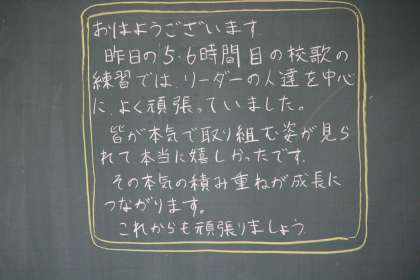 おはようございます
昨日の5・6時間目の校歌の
練習では、リーダーの人達を中心
に、よく頑張っていました。
皆が本気で取り組む姿が見ら
れて本当に嬉しかったです。
その本気の積み重ねが成長に
つながります。
これからも頑張りましょう